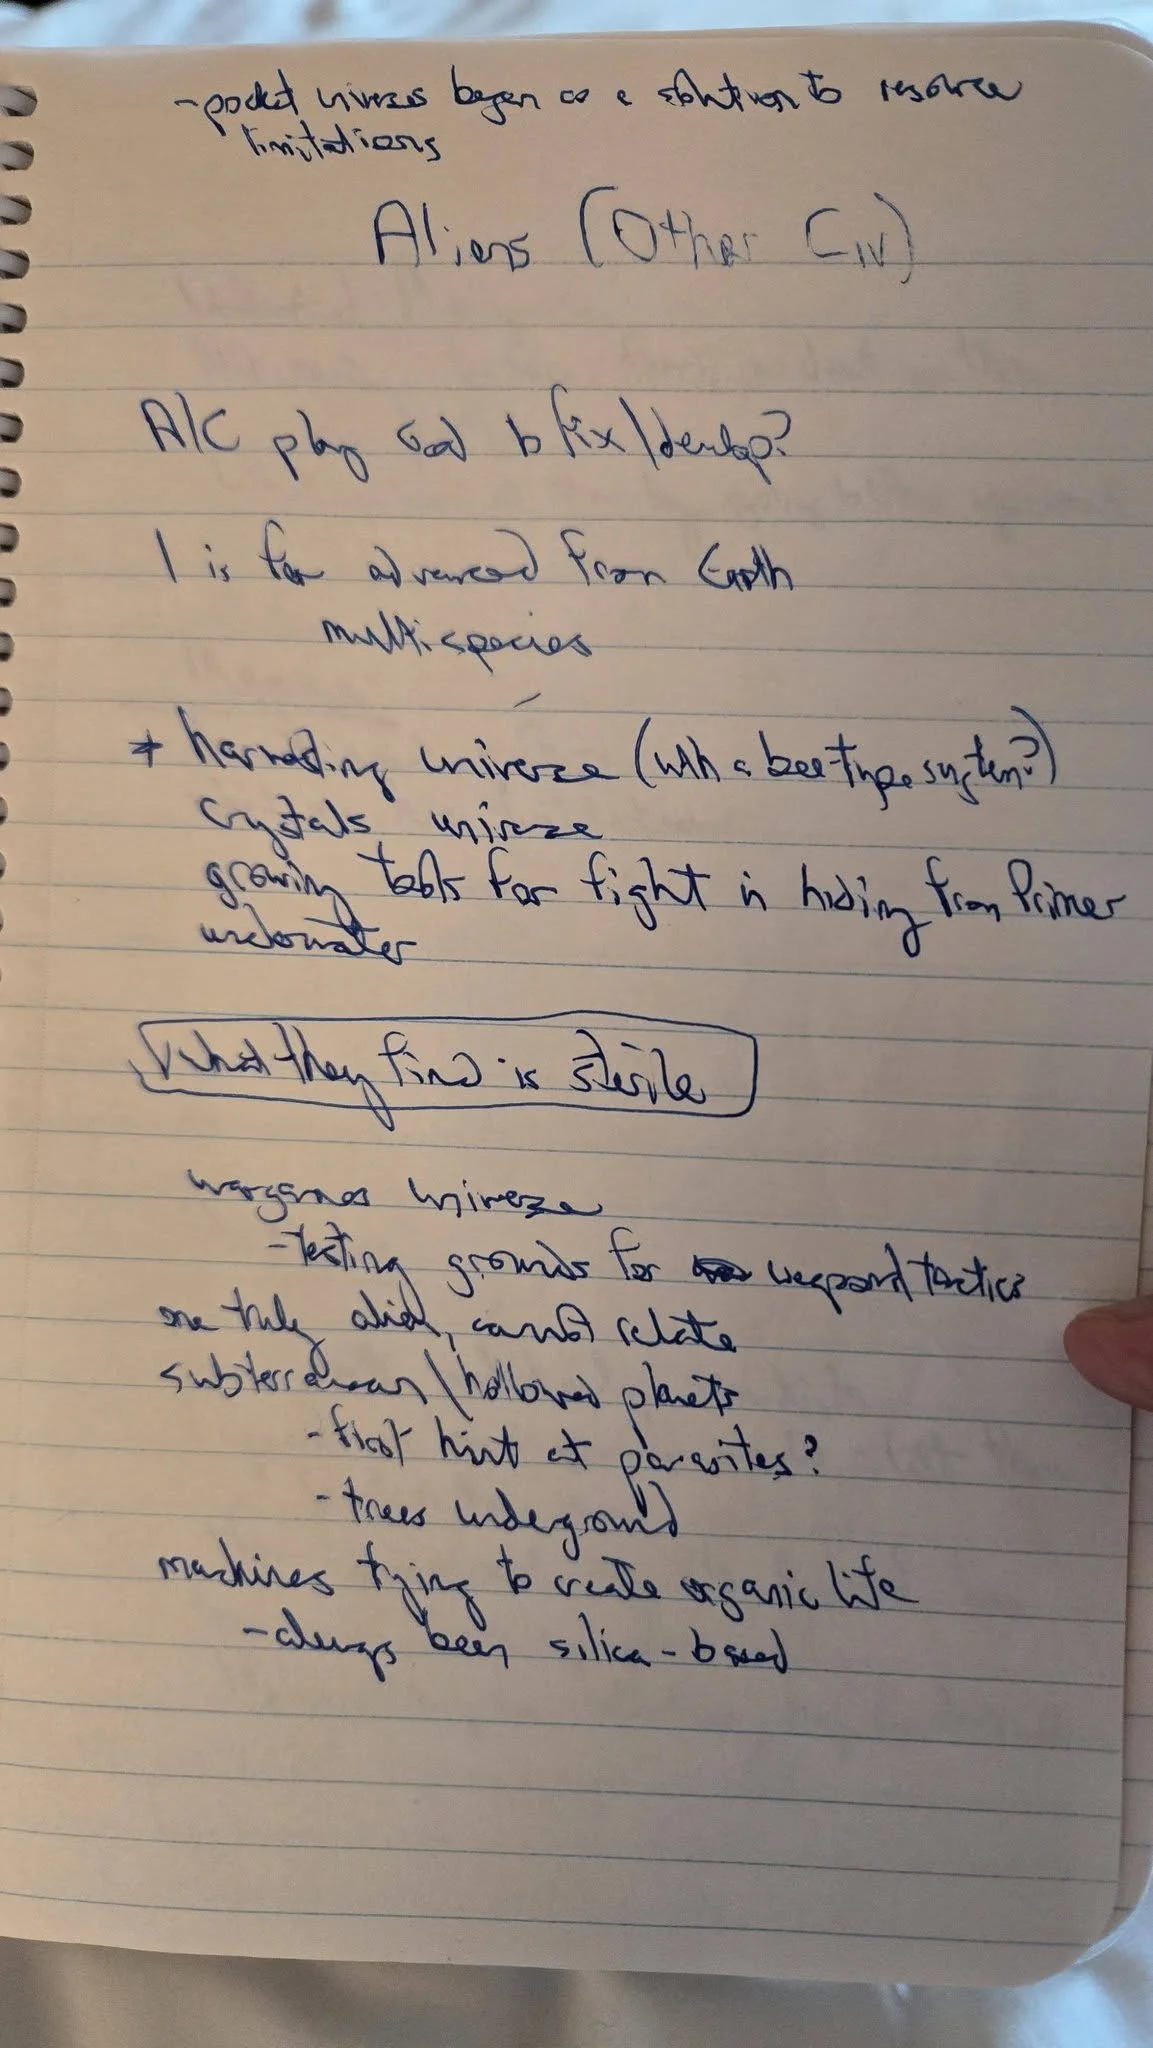 - pocket universes began as a solution to resource
limitations
Aliens (Other Civ)
A/C play God to fix/develop?
1 is far advanced from Earth
multispecies
* harvesting universe (with a bee-type system?)
crystals universe
growing tools for fight in hiding from Primer
underwater
What they find is sterile
wargames universe
- testing grounds for weapons/tactics
one truly alien, cannot relate
subterranean/hollowed planets
- first hint at parasites?
- trees underground
machines trying to create organic life
- always been silica-based